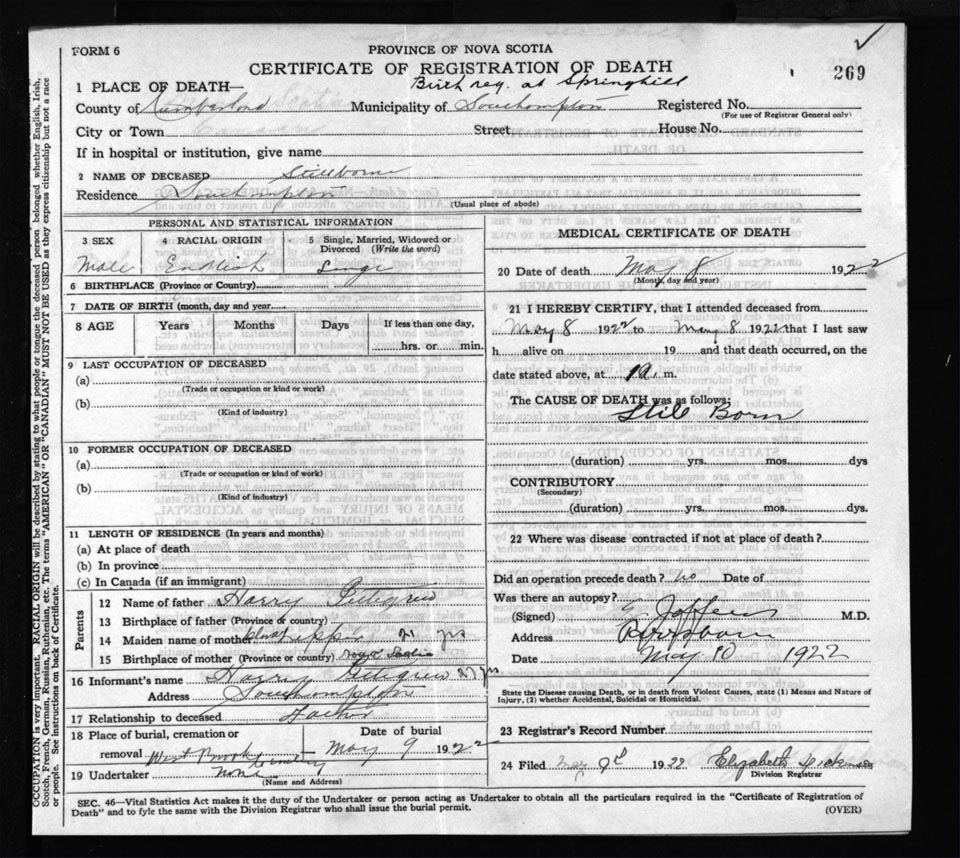 FORM 6
PROVINCE OF NOVA SCOTIA
CERTIFICATE OF REGISTRATION OF DEATH
269
Birth reg. at Springhill
1 PLACE OF DEATH—
County of Cumberland Municipality of Southampton Registered No.
(For use of Registrar General only)
City or Town Street House No.
If in hospital or institution, give name
2 NAME OF DECEASED Stillborn
Residence Southampton
(Usual place of abode)
PERSONAL AND STATISTICAL INFORMATION
3 SEX 4 RACIAL ORIGIN 5 Single, Married, Widowed or Divorced (Write the word)
Male English Single
6 BIRTHPLACE (Province or Country)
7 DATE OF BIRTH (month, day and year)
8 AGE Years Months Days If less than one day,
hrs. or min.
9 LAST OCCUPATION OF DECEASED
(a)
(Trade or occupation or kind or work)
(b)
(Kind of industry)
10 FORMER OCCUPATION OF DECEASED
(a)
(Trade or occupation or kind of work)
(b)
(Kind of industry)
11 LENGTH OF RESIDENCE (In years and months)
(a) At place of death
(b) In province
(c) In Canada (if an immigrant)
Parents
12 Name of father Harry
13 Birthplace of father (Province or country)
14 Maiden name of mother 21 yrs
15 Birthplace of mother (Province or country) Scotia
16 Informant's name Harry
Address Southampton
17 Relationship to deceased Father
18 Place of burial, cremation or Date of burial
removal West Brook Cemetery May 9 1922
19 Undertaker none
(Name and Address)
MEDICAL CERTIFICATE OF DEATH
20 Date of death May 8 1922
(Month, day and year)
21 I HEREBY CERTIFY, that I attended deceased from
May 8 1922 to May 8 1922 that I last saw
h alive on 19 and that death occurred, on the
date stated above, at m.
The CAUSE OF DEATH was as follows:
Still Born
(duration) yrs. mos. dys
CONTRIBUTORY
(Secondary)
(duration) yrs. mos. dys.
22 Where was disease contracted if not at place of death?
Did an operation precede death? no Date of
Was there an autopsy?
(Signed) M.D.
Address Parrsboro
Date May 10 1922
State the Disease causing Death, or in death from Violent Causes, state (1) Means and Nature of
Injury, (2) whether Accidental, Suicidal or Homicidal.
23 Registrar's Record Number
24 Filed May 1922 Elizabeth
Division Registrar
SEC. 46—Vital Statistics Act makes it the duty of the Undertaker or person acting as Undertaker to obtain all the particulars required in the "Certificate of Registration of
Death" and to fyle the same with the Division Registrar who shall issue the burial permit. (OVER)
OCCUPATION is very important. RACIAL ORIGIN will be described by stating to what people or tongue the deceased person belonged whether English, Irish,
Scotch, French, German, Russian, Ruthenian, etc. The terms "AMERICAN" OR "CANADIAN" MUST NOT BE USED as they express citizenship but not a race
or people. See instructions on back of Certificate.